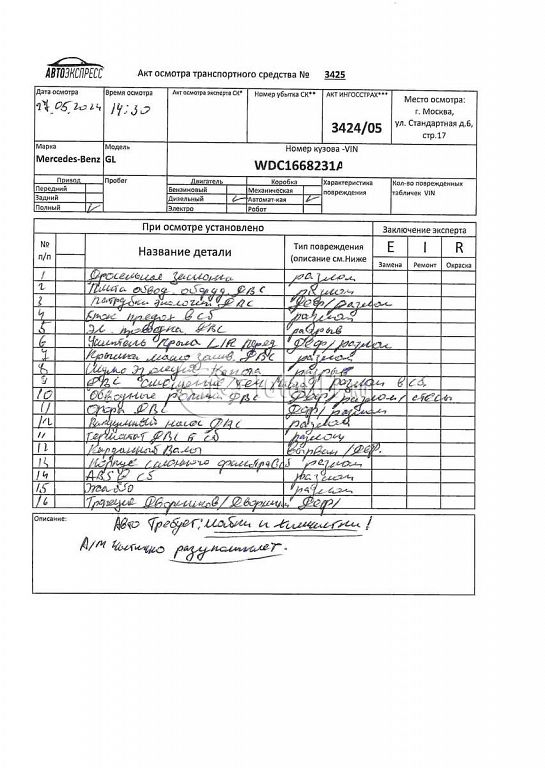 АВТОЭКСПРЕСС
Акт осмотра транспортного средства № 3425
Дата осмотра
27.05.2024
Время осмотра
14:30
Акт осмотра эксперта СК*
Номер убытка СК**
АКТ ИНГОССТРАХ***
3424/05
Место осмотра:
г. Москва,
ул. Стандартная д.6,
стр.17
Марка
Mercedes-Benz
Модель
GL
Номер кузова -VIN
WDC1668231A
Привод
Передний
Задний
Полный
Пробег
Двигатель
Бензиновый
Дизельный
Электро
Коробка
Механическая
Автомат-кая
Робот
Характеристика
повреждения
Кол-во поврежденных
табличек VIN
При осмотре установлено
Заключение эксперта
№
п/п
Название детали
Тип повреждения
(описание см.Ниже
E I R
Замена Ремонт Окраска
1 Дросельная Заслонка разлом
2 Плита обвод. обфуд. ДВС разлом
3 Патрубки ДВС Деф/разлом
4 Блок предох в сб разлом
5 Эл. проводка ДВС разрыв
6 Усилитель Крыла L/R перед Деф/разлом
7 Крышка масло залив. ДВС разлом
8 Капота разрыв
9 ДВС разлом в сб.
10 Обводные ролики ДВС Деф/разлом/
11 Опора ДВС Деф/разлом
12 Вакуумный насос ДВС разлом
11 Термостат ДВС в сб разлом
12 Карданный Вал Деф.
13 Корпус фильтра сб разлом
14 ABS в сб разлом
15 разлом
16 Трапеция Дворников/Дворники Деф/
Описание:
Авто Требует: мойки и химчистки!
А/м частично разукомплект.